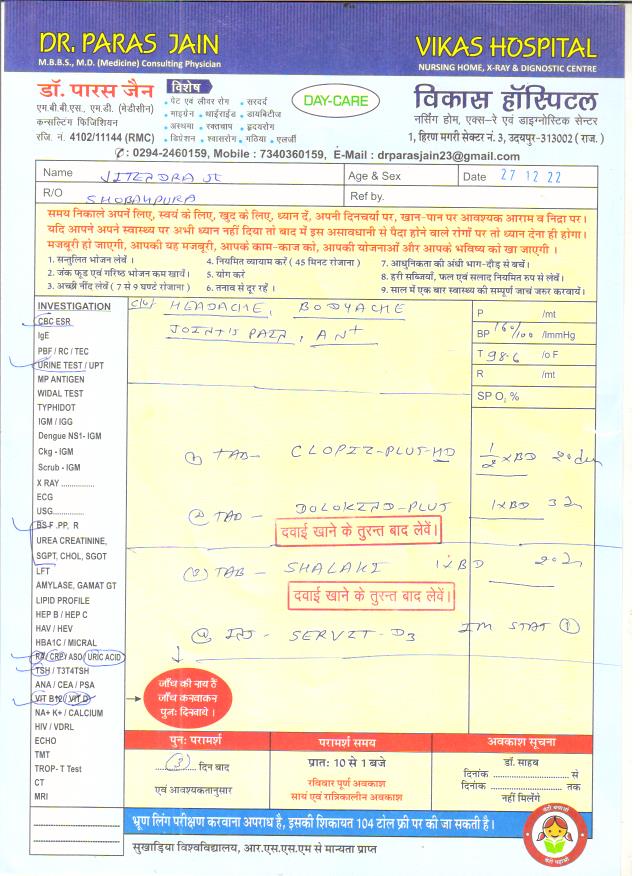 DR. PARAS JAIN
M.B.B.S., M.D. (Medicine) Consulting Physician
VIKAS HOSPITAL
NURSING HOME, X-RAY & DIGNOSTIC CENTRE
डॉ. पारस जैन
एम.बी.बी.एस., एम.डी. (मेडीसीन)
कन्सल्टिंग फिजिशियन
रजि. नं. 4102/11144 (RMC)
विशेष
• पेट एवं लीवर रोग • सरदर्द
• माइग्रेन • थाईराईड • डायबिटीज
• अस्थमा • रक्तचाप • हृदयरोग
• डिप्रेशन • श्वासरोग • गठिया • एलर्जी
DAY-CARE
विकास हॉस्पिटल
नर्सिंग होम, एक्स-रे एवं डाइग्नोस्टिक सेन्टर
1, हिरण मगरी सेक्टर नं. 3, उदयपुर-313002 (राज.)
: 0294-2460159, Mobile : 7340360159, E-Mail : drparasjain23@gmail.com
Name JITENDRA JI
Age & Sex
Date 27 12 22
R/O SHOBAHPURA
Ref by.
समय निकाले अपनें लिए, स्वयं के लिए, खुद के लिए, ध्यान दें, अपनी दिनचर्या पर, खान-पान पर आवश्यक आराम व निद्रा पर।
यदि आपने अपने स्वास्थ्य पर अभी ध्यान नहीं दिया तो बाद में इस असावधानी से पैदा होने वाले रोगों पर तो ध्यान देना ही होगा।
मजबूरी हो जाएगी, आपकी यह मजबूरी, आपके काम-काज को, आपकी योजनाओं और आपके भविष्य को खा जाएगी।
1. सन्तुलित भोजन लेवें।
2. जंक फूड एवं गरिष्ठ भोजन कम खायें।
3. अच्छी नींद लेवें (7 से 9 घण्टे रोजाना)
4. नियमित व्यायाम करें (45 मिनट रोजाना)
5. योग करें
6. तनाव से दूर रहें।
7. आधुनिकता की अंधी भाग-दौड़ से बचें।
8. हरी सब्जियाँ, फल एवं सलाद नियमित रुप से लेवें।
9. साल में एक बार स्वास्थ्य की सम्पूर्ण जांच जरुर करवायें।
INVESTIGATION
CBC ESR
IgE
PBF / RC / TEC
URINE TEST / UPT
MP ANTIGEN
WIDAL TEST
TYPHIDOT
IGM / IGG
Dengue NS1- IGM
Ckg - IGM
Scrub - IGM
X RAY ...............
ECG
USG....................
BS-F .PP, R
UREA CREATININE,
SGPT, CHOL, SGOT
LFT
AMYLASE, GAMAT GT
LIPID PROFILE
HEP B / HEP C
HAV / HEV
HBA1C / MICRAL
RF/ CRP/ ASO /URIC ACID
TSH / T3T4TSH
ANA / CEA / PSA
VIT B12 / VIT D
NA+ K+ / CALCIUM
HIV / VDRL
ECHO
TMT
TROP- T Test
CT
MRI
C/o HEADACHE, BODYACHE
JOINTS PAIN, AN+
P /mt
BP 160/100 /lmmHg
T 98.6 /o F
R /mt
SP O2 %
① TAB- CLOPIZ-PLUS-MD 1/2 xBD
② TAB- DOLOKIND-PLUS 1xBD
दवाई खाने के तुरन्त बाद लेवें।
③ TAB - SHALAKI 1xBD
दवाई खाने के तुरन्त बाद लेवें।
④ INJ- SERVIT-D3 IM STAT ①
जाँच की राय हैं
जाँच करवाकर
पुनः दिखावे।
पुनः परामर्श
(3) दिन बाद
एवं आवश्यकतानुसार
परामर्श समय
प्रातः 10 से 1 बजे
रविवार पूर्ण अवकाश
सायं एवं रात्रिकालीन अवकाश
अवकाश सूचना
डॉ. साहब
दिनांक .................... से
दिनांक .................... तक
नहीं मिलेंगे
भ्रूण लिंग परीक्षण करवाना अपराध है, इसकी शिकायत 104 टोल फ्री पर की जा सकती है।
सुखाड़िया विश्वविद्यालय, आर.एस.एस.एम से मान्यता प्राप्त
बेटी बचाओ
बेटी पढ़ाओ